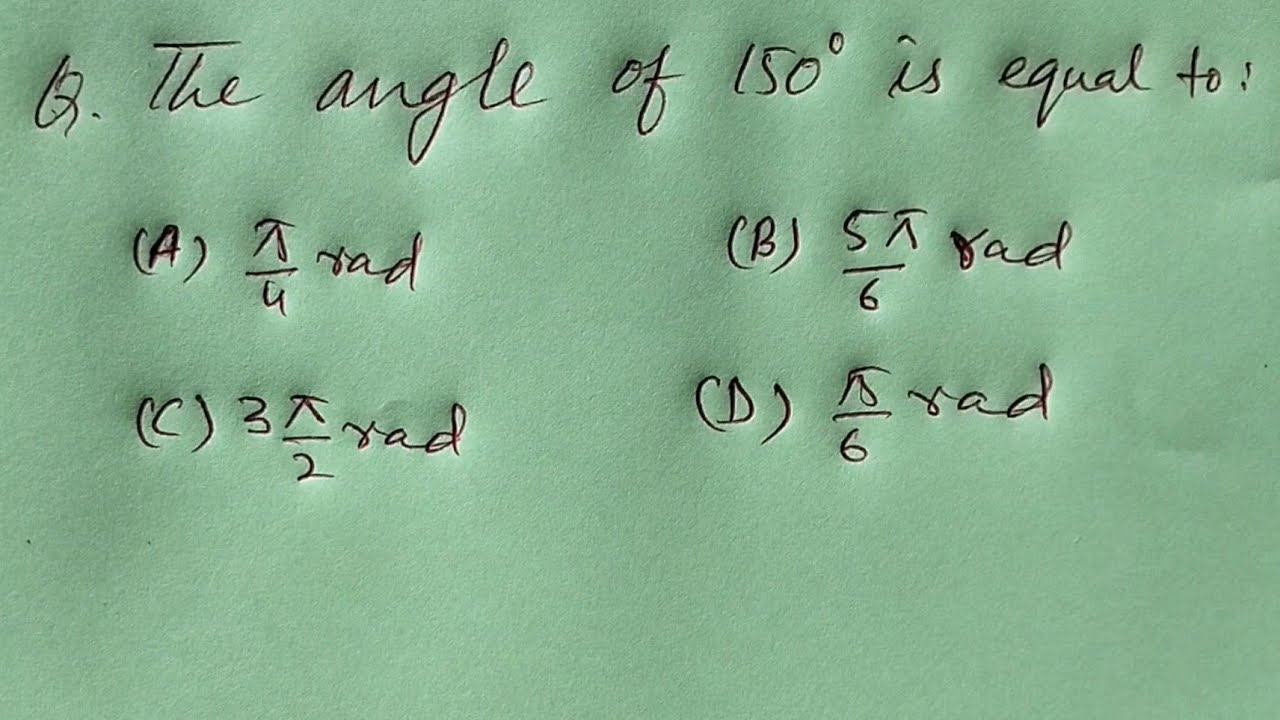 Q. The angle of 150° is equal to:
(A) π/4 rad (B) 5π/6 rad
(C) 3π/2 rad (D) π/6 rad